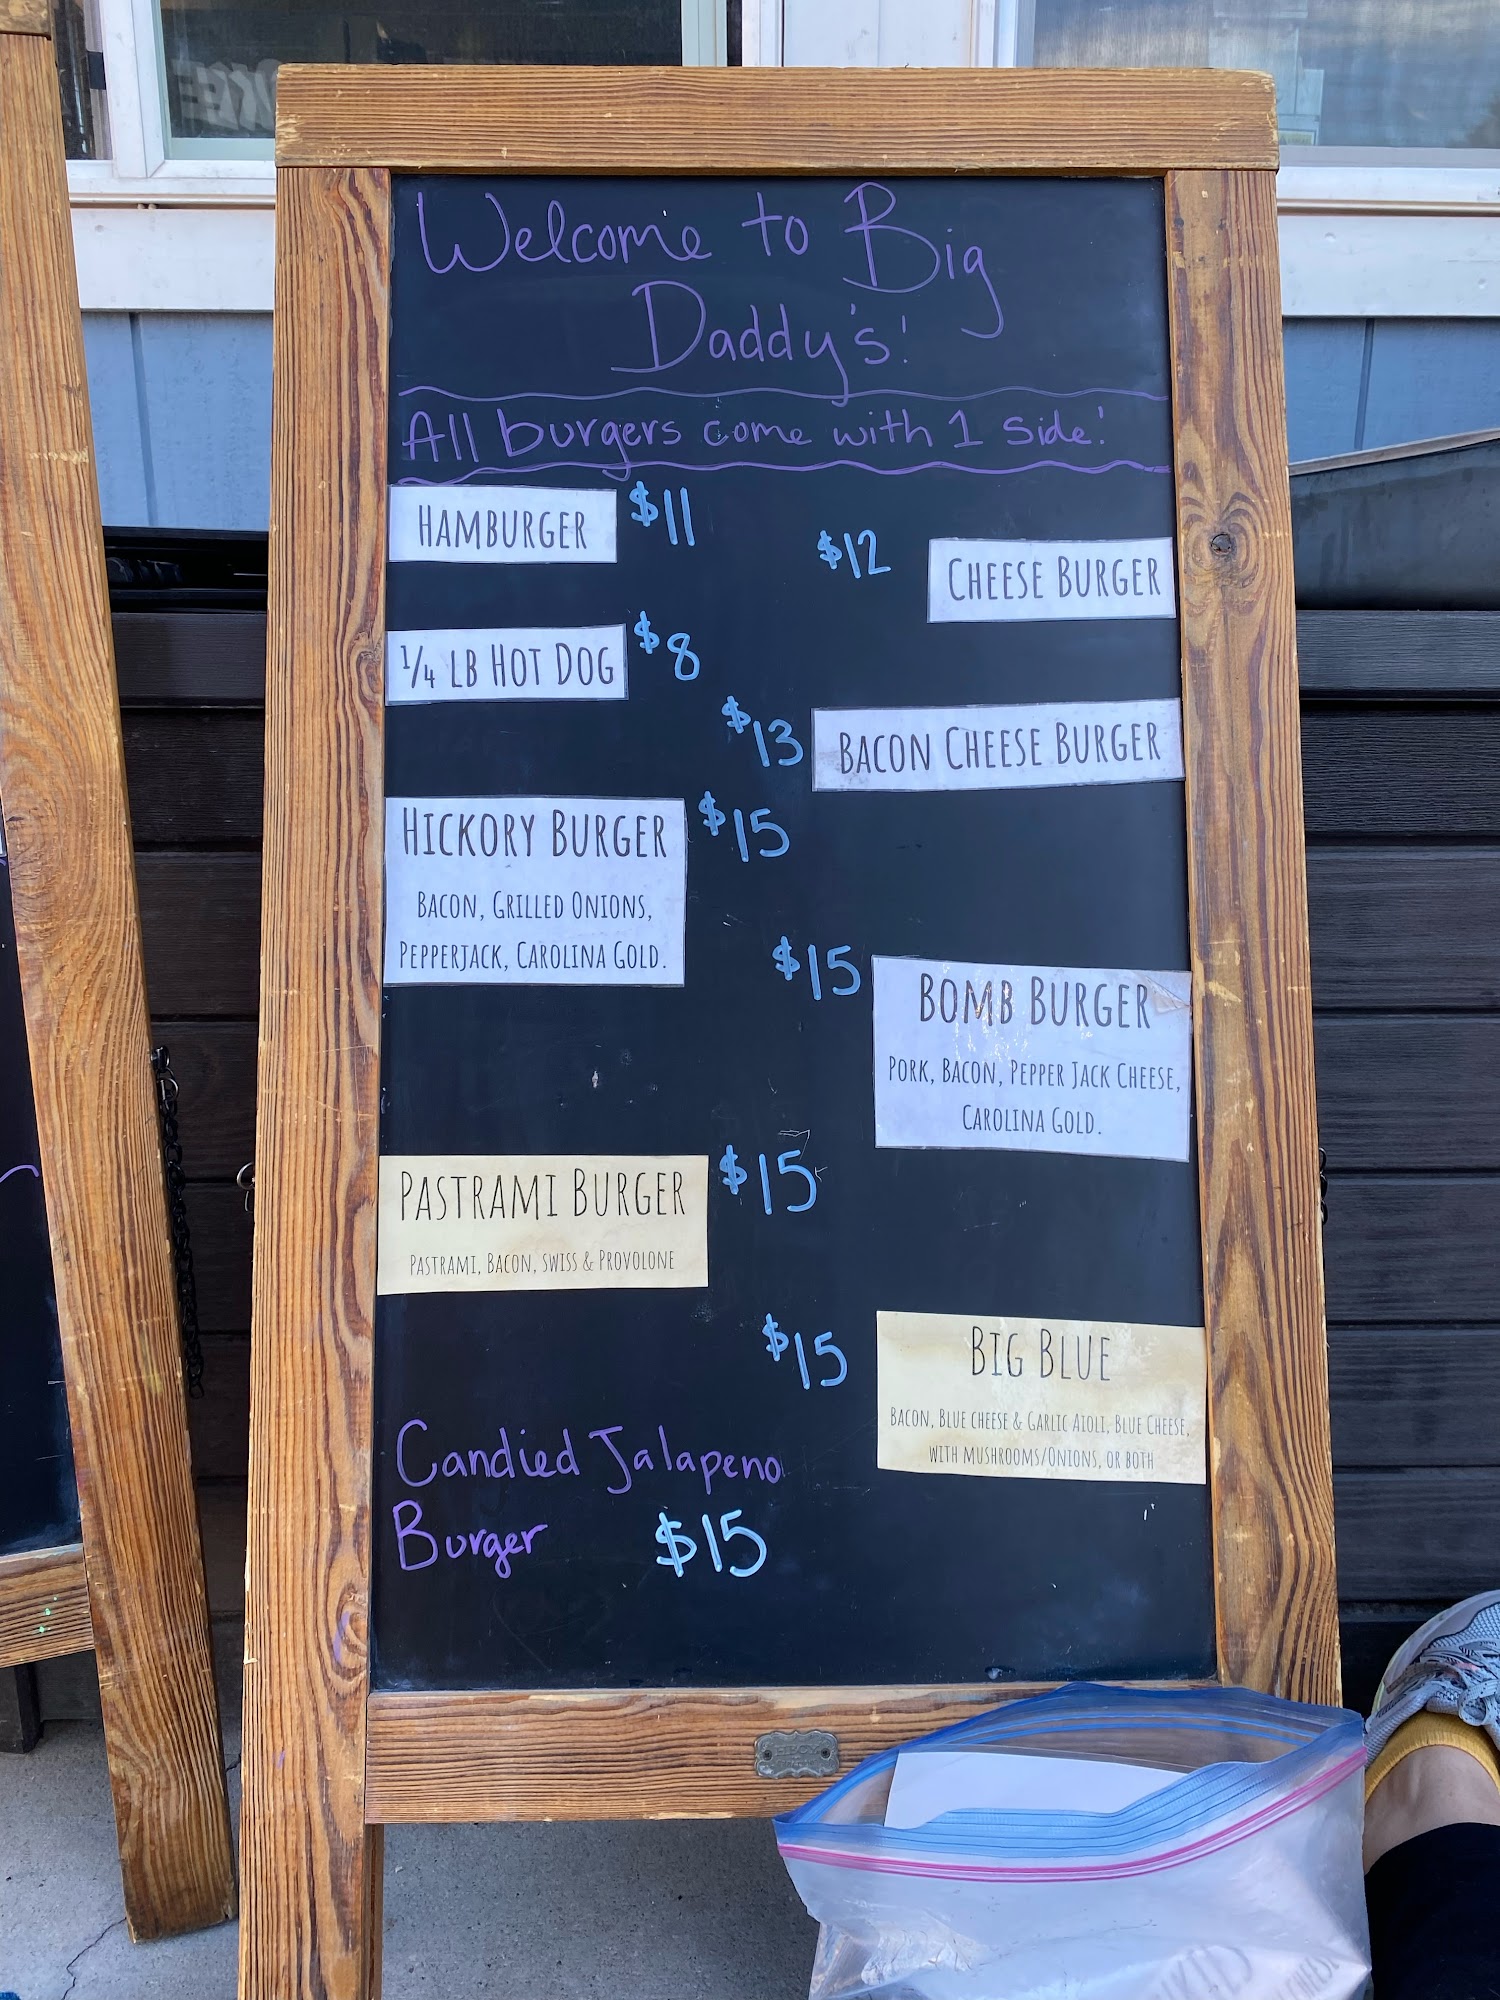 Welcome to Big
Daddy's!
All burgers come with 1 side!
HAMBURGER $11
$12 CHEESE BURGER
1/4 LB HOT DOG $8
$13 BACON CHEESE BURGER
HICKORY BURGER $15
BACON, GRILLED ONIONS,
PEPPERJACK, CAROLINA GOLD.
$15 BOMB BURGER
PORK, BACON, PEPPER JACK CHEESE,
CAROLINA GOLD.
PASTRAMI BURGER $15
PASTRAMI, BACON, SWISS & PROVOLONE
$15 BIG BLUE
BACON, BLUE CHEESE & GARLIC AIOLI, BLUE CHEESE,
WITH MUSHROOMS/ONIONS, OR BOTH
Candied Jalapeno
Burger $15